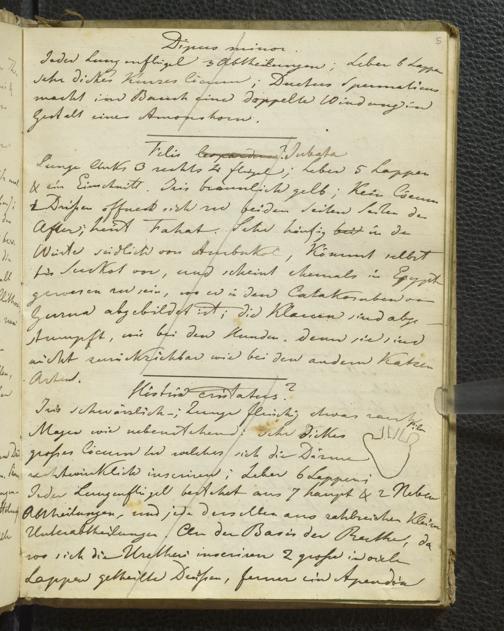 5
Dipus minor.
Jeder Lungenflügel 3 Abtheilungen; Leber 6 Lappen
sehr dickes kurzes Cöcum; Ductus Spermaticus
macht im Bauch eine doppelte Windung in
Gestalt eines Amonshorn.
Felis leopardus? Jubata
Lunge links 3 rechts 4 flügel; Leber 5 Lappen
& ein Einschnitt. Iris bräunlich gelb; Kein Cöcum
2 Drüßen öffnet sich zu beiden Seiten des
After; heist Fahat. Sehr häufig in der
Wüste südlich von Ambukol, kömmt selbst
bis Surkot vor, und scheint ehemals in Egypten
gewesen zu sein, wo er in den Catakomben von
Gurna abgebildet ist; die Klauen sind abge-
stumpft, wie bei den Hunden. denn sie sind
nicht zurückziehbar wie bei den andern Katzen
Arten.
Histrix cristatus?
Iris schwärzlich; Zunge fleischig etwas rauh
Magen wie nebenstehend; sehr dickes
großes Cöcum in welches sich die Därme
rechtwinklicht inseriren; Leber 6 Lappen;
Jeder Lungenflügel bestehet aus 7 haupt & 2 Neben
Abtheilungen, und jede derselben aus zahlreichen kleinen
Unterabtheilungen. An der Basis der Ruthe, da
wo sich die Urethri inseriren 2 große in viele
Lappen getheilte Drüßen, ferner ein Apendix